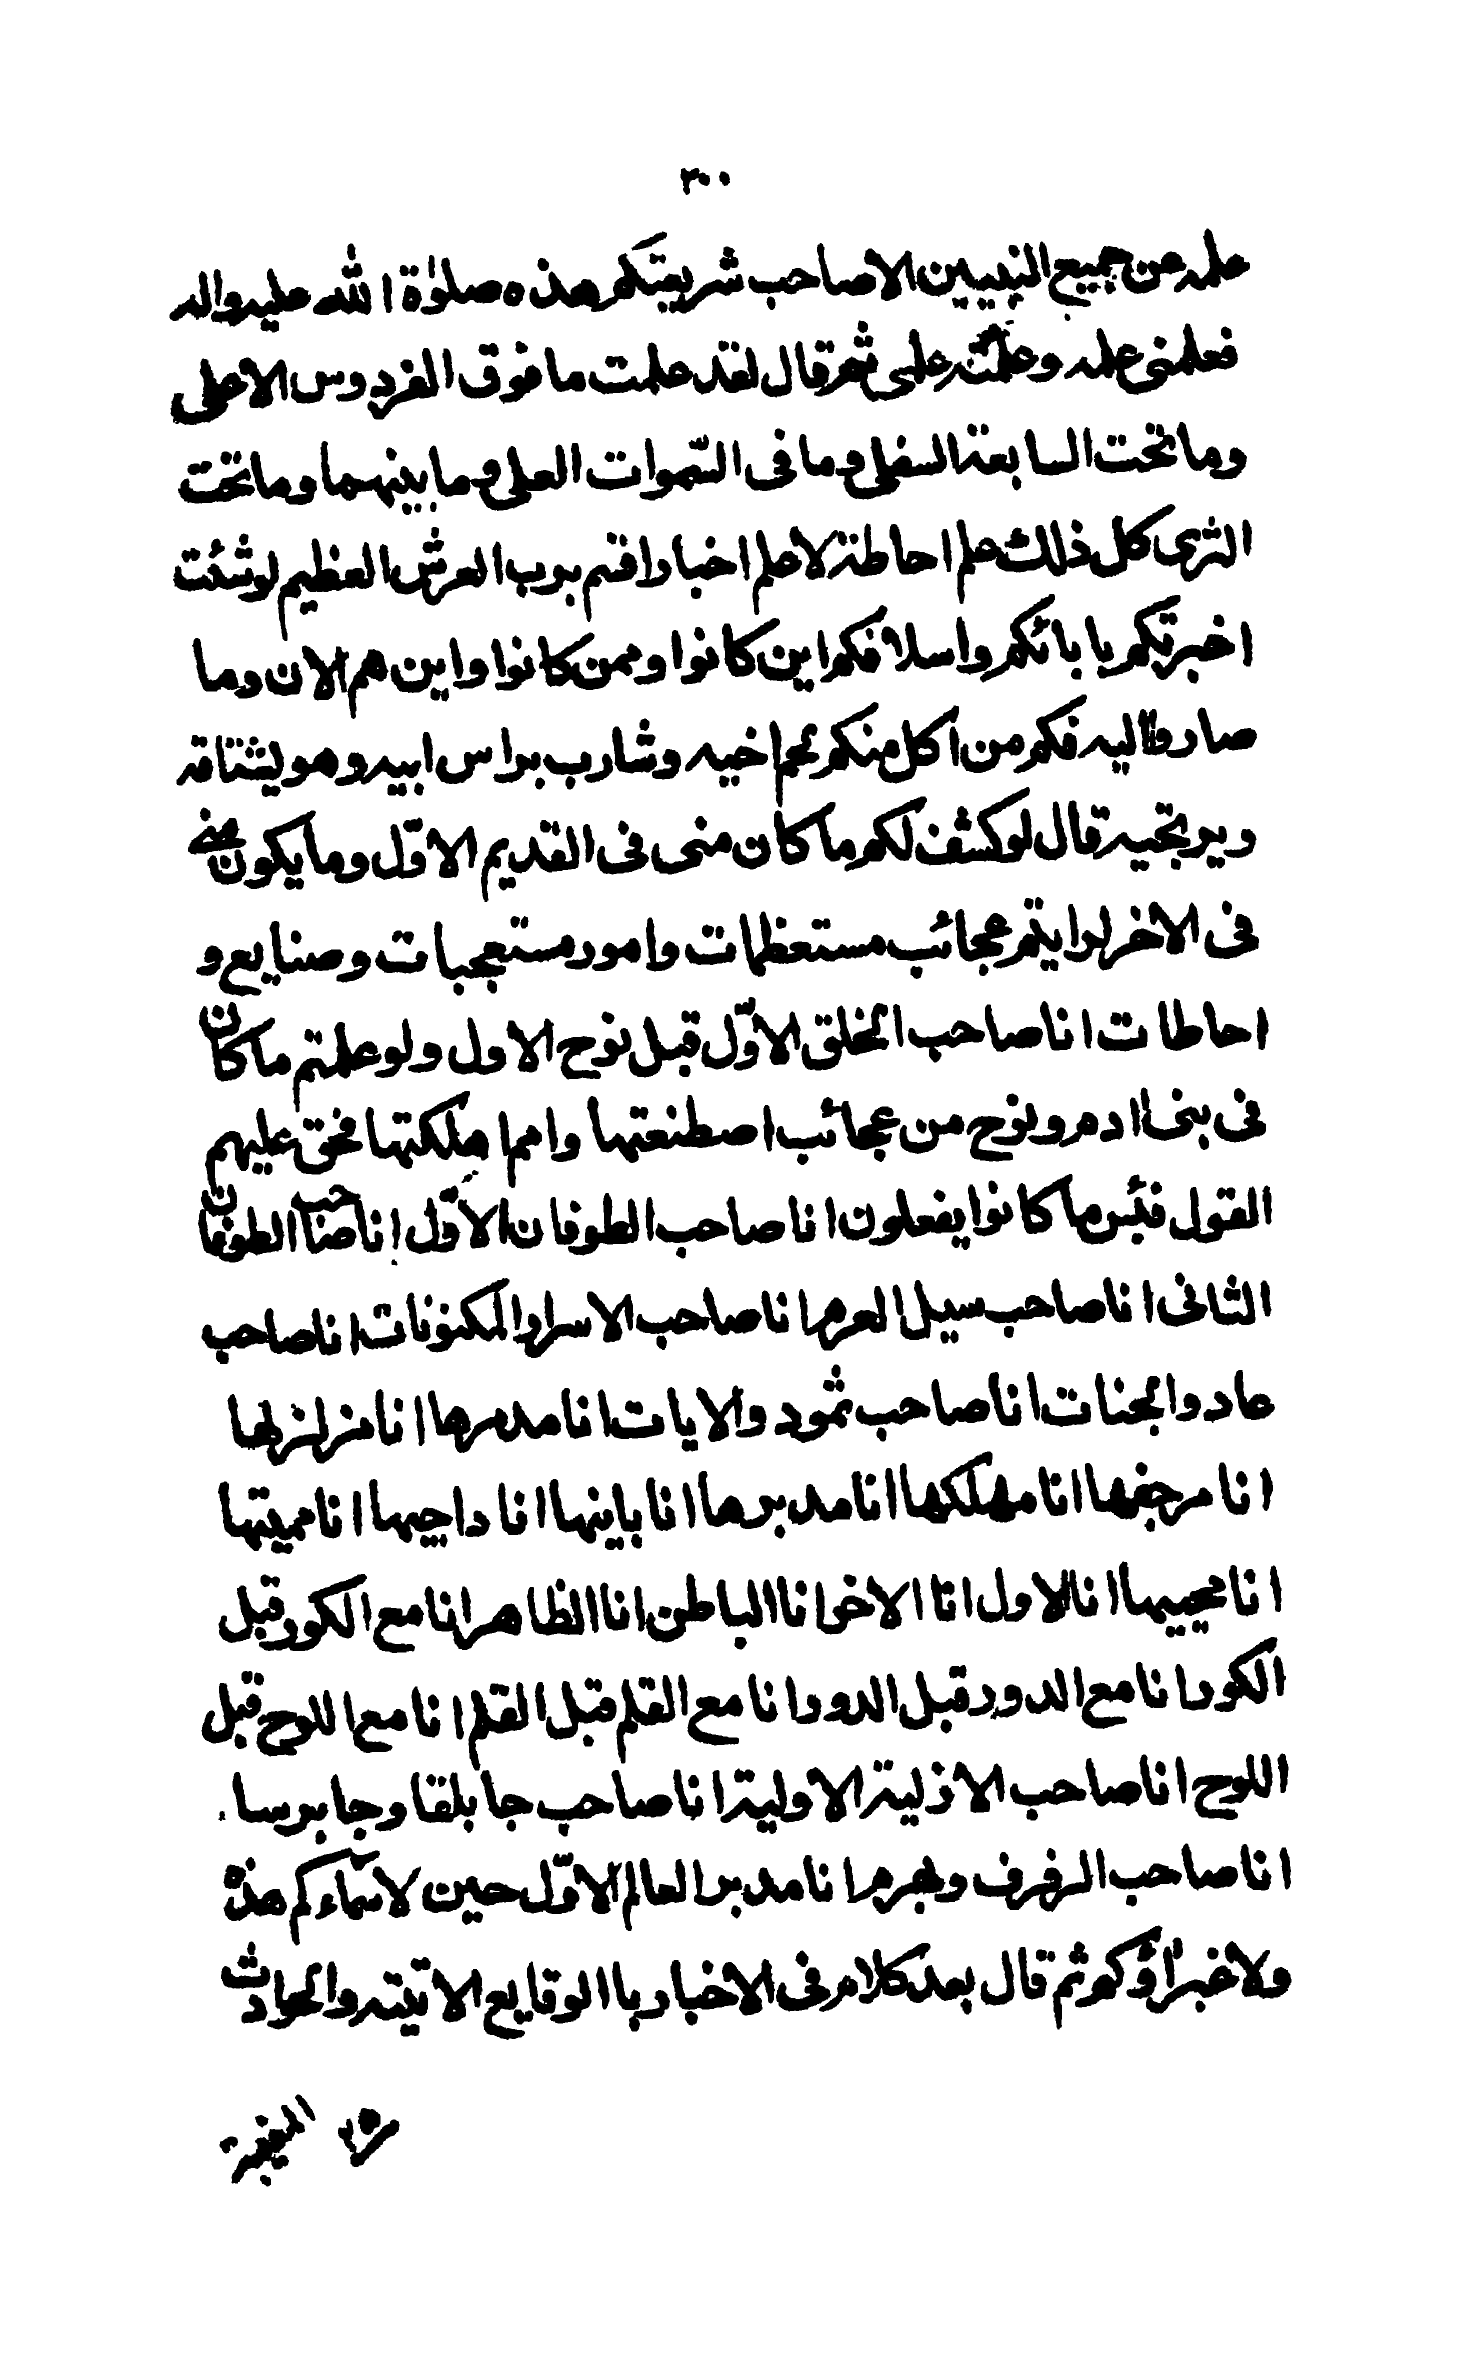 ٣٠٠
علمه عن جميع النبيين الا صاحب شريعتكم هذه صلوٰة الله عليه واله
فعلمنى علمه وعلمته علمى ثم قال لقد علمت ما فوق الفردوس الاعلى
وما تحت السابعة السفلى وما فى السّموات العلى وما بينهما وما تحت
الثرى كل ذلك علم احاطة لا علم اخبار اقسم برب العرش العظيم لو شئت
اخبرتكم بابائكم واسلافكم اين كانوا وممن كانوا واين هم الان وما
صاروا اليه فكم من اكل منكم لحم اخيه وشارب براس ابيه وهو يشتاقه
ويرتجيه قال لو كشف لكم ما كان منى فى القديم الاوّل وما يكون منى
فى الاخر لرايتم عجائب مستعظمات وامور مستعجبات وصنايع و
احاطات انا صاحب الخلق الاوّل قبل نوح الاول ولو علمتم ما كان
فى بنى ادم ونوح من عجائب اصطنعتها وامم اهلكتها فحق عليهم
القول فبئس ما كانوا يفعلون انا صاحب الطوفان الاوّل انا صاحب الطوفان
الثانى انا صاحب سيل العرم انا صاحب الاسرار المكنونات انا صاحب
عاد والجنات انا صاحب ثمود والايات انا مدمرها انا مزلزلها
انا مرجفها انا مهلكها انا مدبرها انا بانيها انا داحيها انا مميتها
انا محييها انا الاول انا الاخر انا الباطن انا الظاهر انا مع الكور قبل
الكور انا مع الدور قبل الدور انا مع القلم قبل القلم انا مع اللوح قبل
اللوح انا صاحب الازلية الاولية انا صاحب جابلقا وجابرسا
انا صاحب الرفرف وبهرم انا مدبر العالم الاوّل حين لا سماءكم هذه
ولا غبراؤكم ثم قال بعد كلام فى الاخبار با الوقايع الاتيته والحوادث